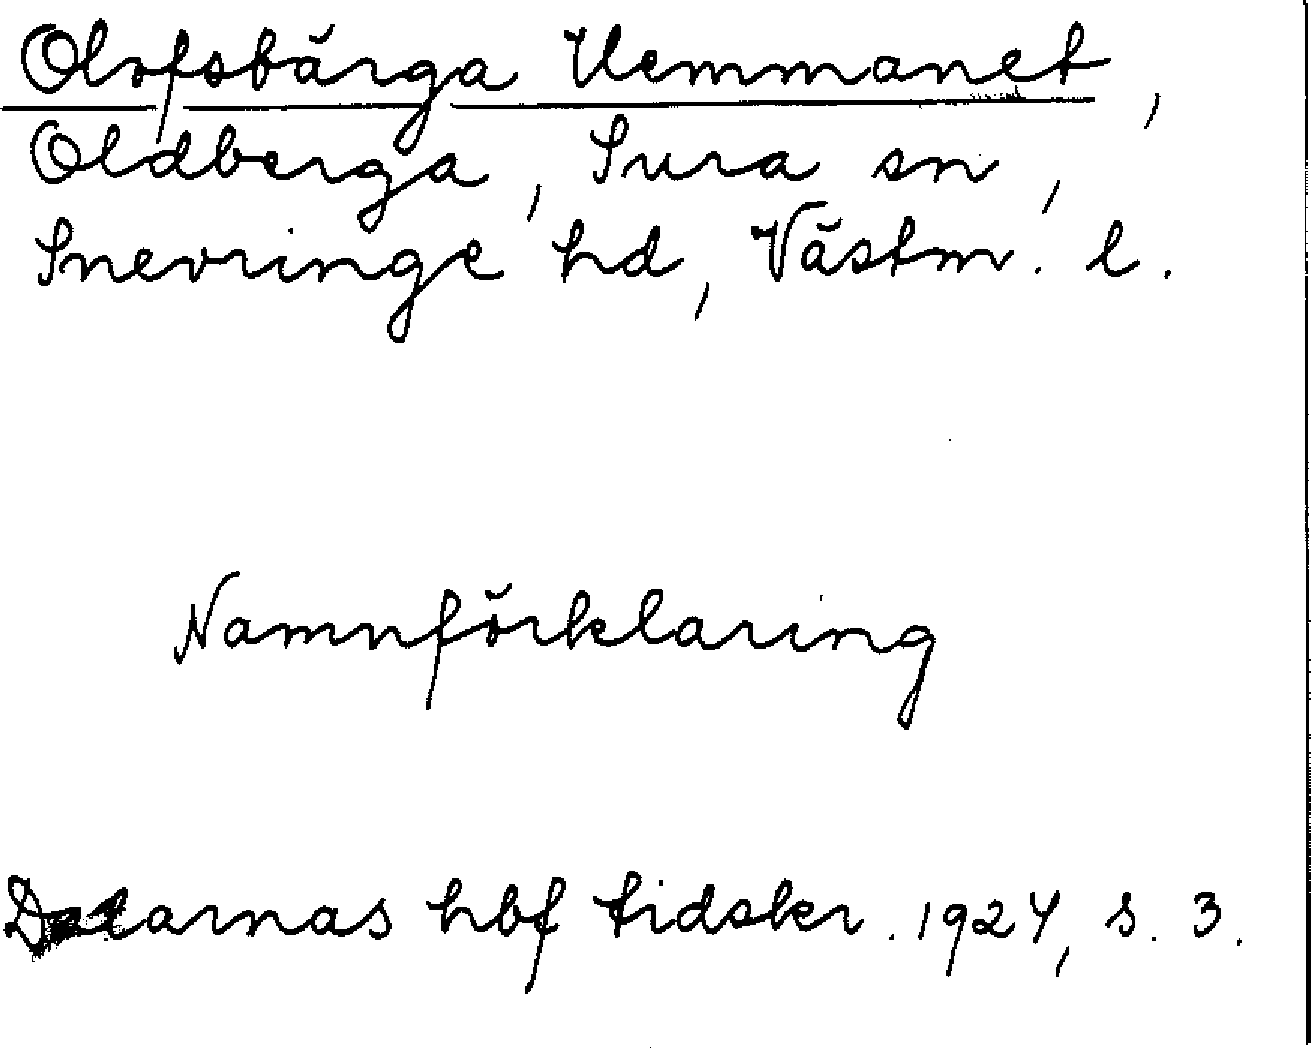 Olofsbärga Hemmanet,
Oldberga, Sura sn,
Snevringe hd, Västm. l.
Namnförklaring
Dalarnas hbf tidskr. 1924, s. 3.